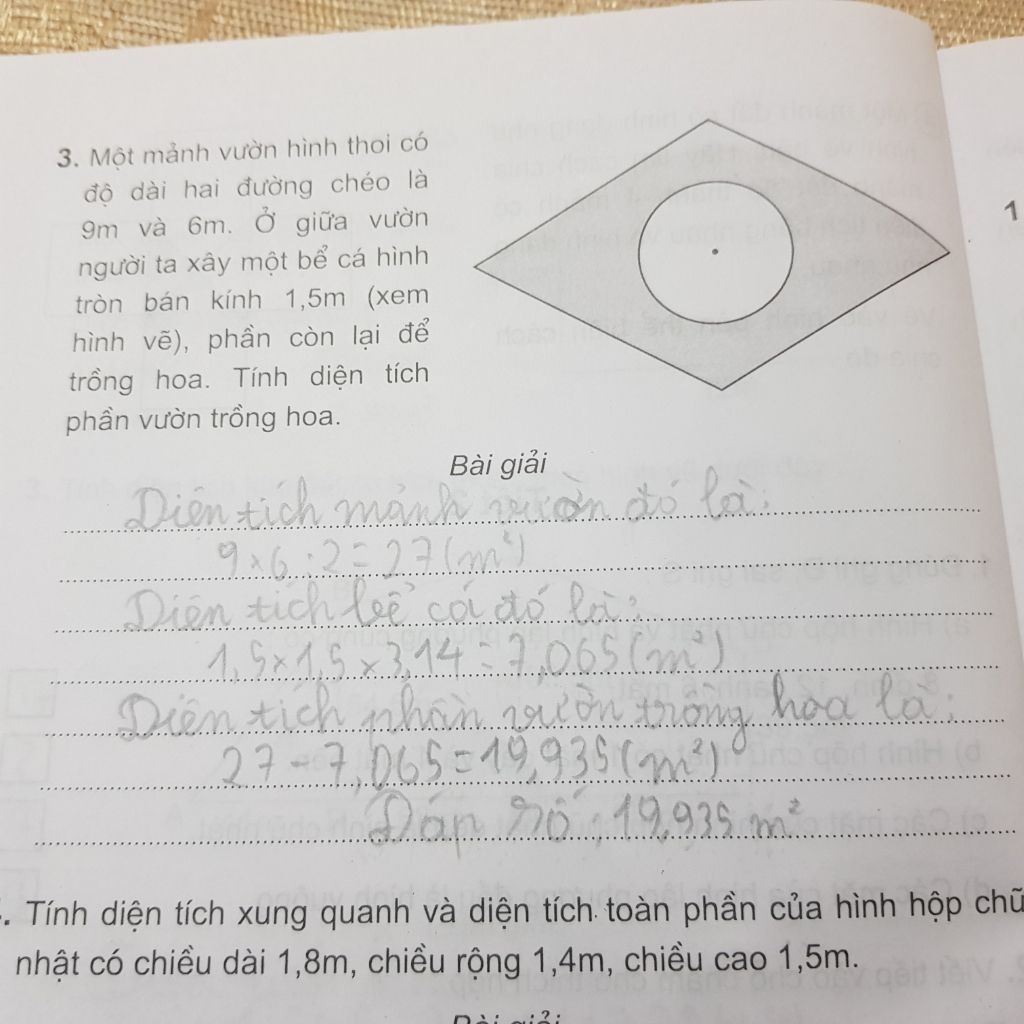 3. Một mảnh vườn hình thoi có
độ dài hai đường chéo là
9m và 6m. Ở giữa vườn
người ta xây một bể cá hình
tròn bán kính 1,5m (xem
hình vẽ), phần còn lại để
trồng hoa. Tính diện tích
phần vườn trồng hoa.
Bài giải
Diện tích mảnh vườn đó là:
9 × 6 : 2 = 27 (m²)
Diện tích bể cá đó là:
1,5 × 1,5 × 3,14 = 7,065 (m²)
Diện tích phần vườn trồng hoa là:
27 - 7,065 = 19,935 (m²)
Đáp số: 19,935 m²
. Tính diện tích xung quanh và diện tích toàn phần của hình hộp chữ
nhật có chiều dài 1,8m, chiều rộng 1,4m, chiều cao 1,5m.
Bài giải
1